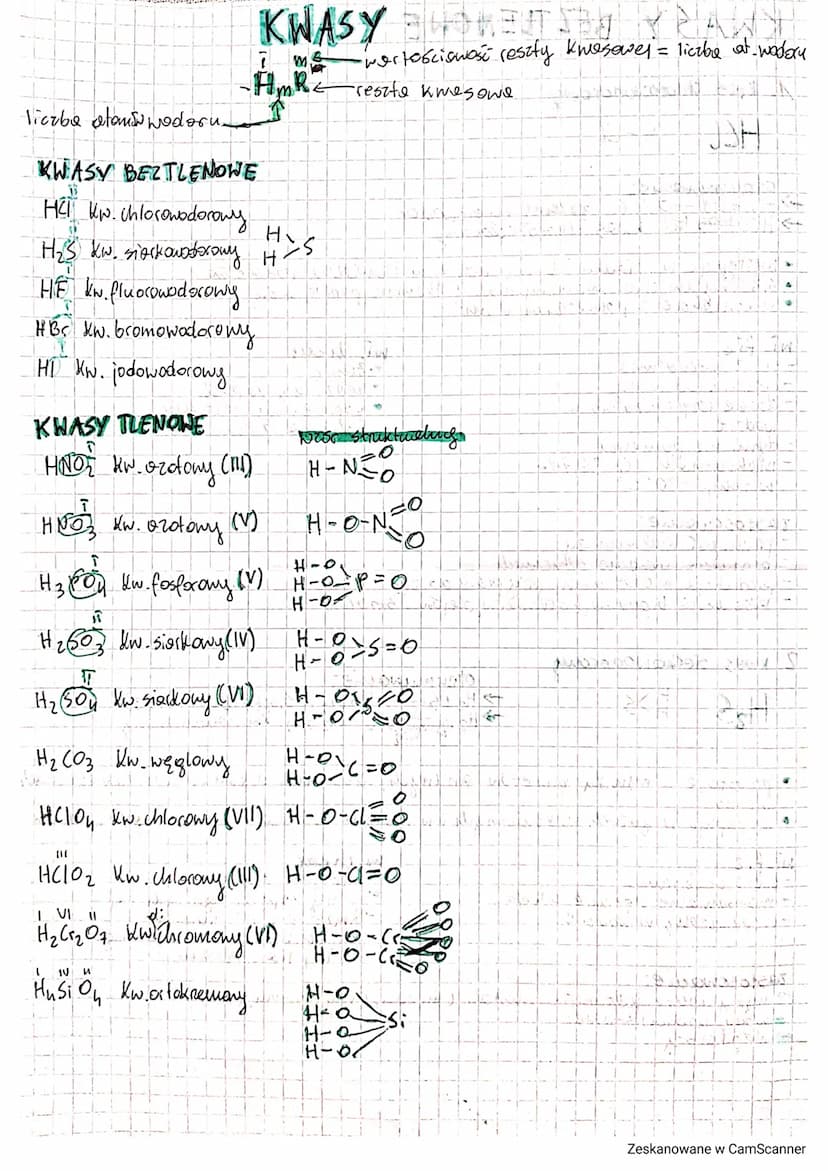 KWASY
I m
wartościowość reszty kwasowej = liczba at. wodoru
- HmR ← reszta kwasowa
liczba atomów wodoru
KWASY BEZTLENOWE
HCl kw. chlorowodorowy
H2S kw. siarkowodorowy H H S
HF kw. fluorowodorowy
HBr kw. bromowodorowy
HI kw. jodowodorowy
KWASY TLENOWE
wzór strukturalny
HNO2 kw. azotowy (III) H-N=O =O
HNO3 kw. azotowy (V) H-O-N=O =O
H3PO4 kw. fosforowy (V) H-O H-O H-O P=O
H2SO3 kw. siarkowy (IV) H-O H-O S=O
H2SO4 kw. siarkowy (VI) H-O H-O S=O =O
H2CO3 kw. węglowy H-O H-O C=O
HClO4 kw. chlorowy (VII) H-O-Cl=O =O =O
III
HClO2 kw. chlorowy (III) H-O-Cl=O
I VI II
H2Cr2O7 kw. dichromowy (VI) H-O-Cr=O =O =O H-O-Cr=O =O
I IV II
H4SiO4 kw. ortokrzemowy H-O H-O H-O H-O Si
Zeskanowane w CamScanner